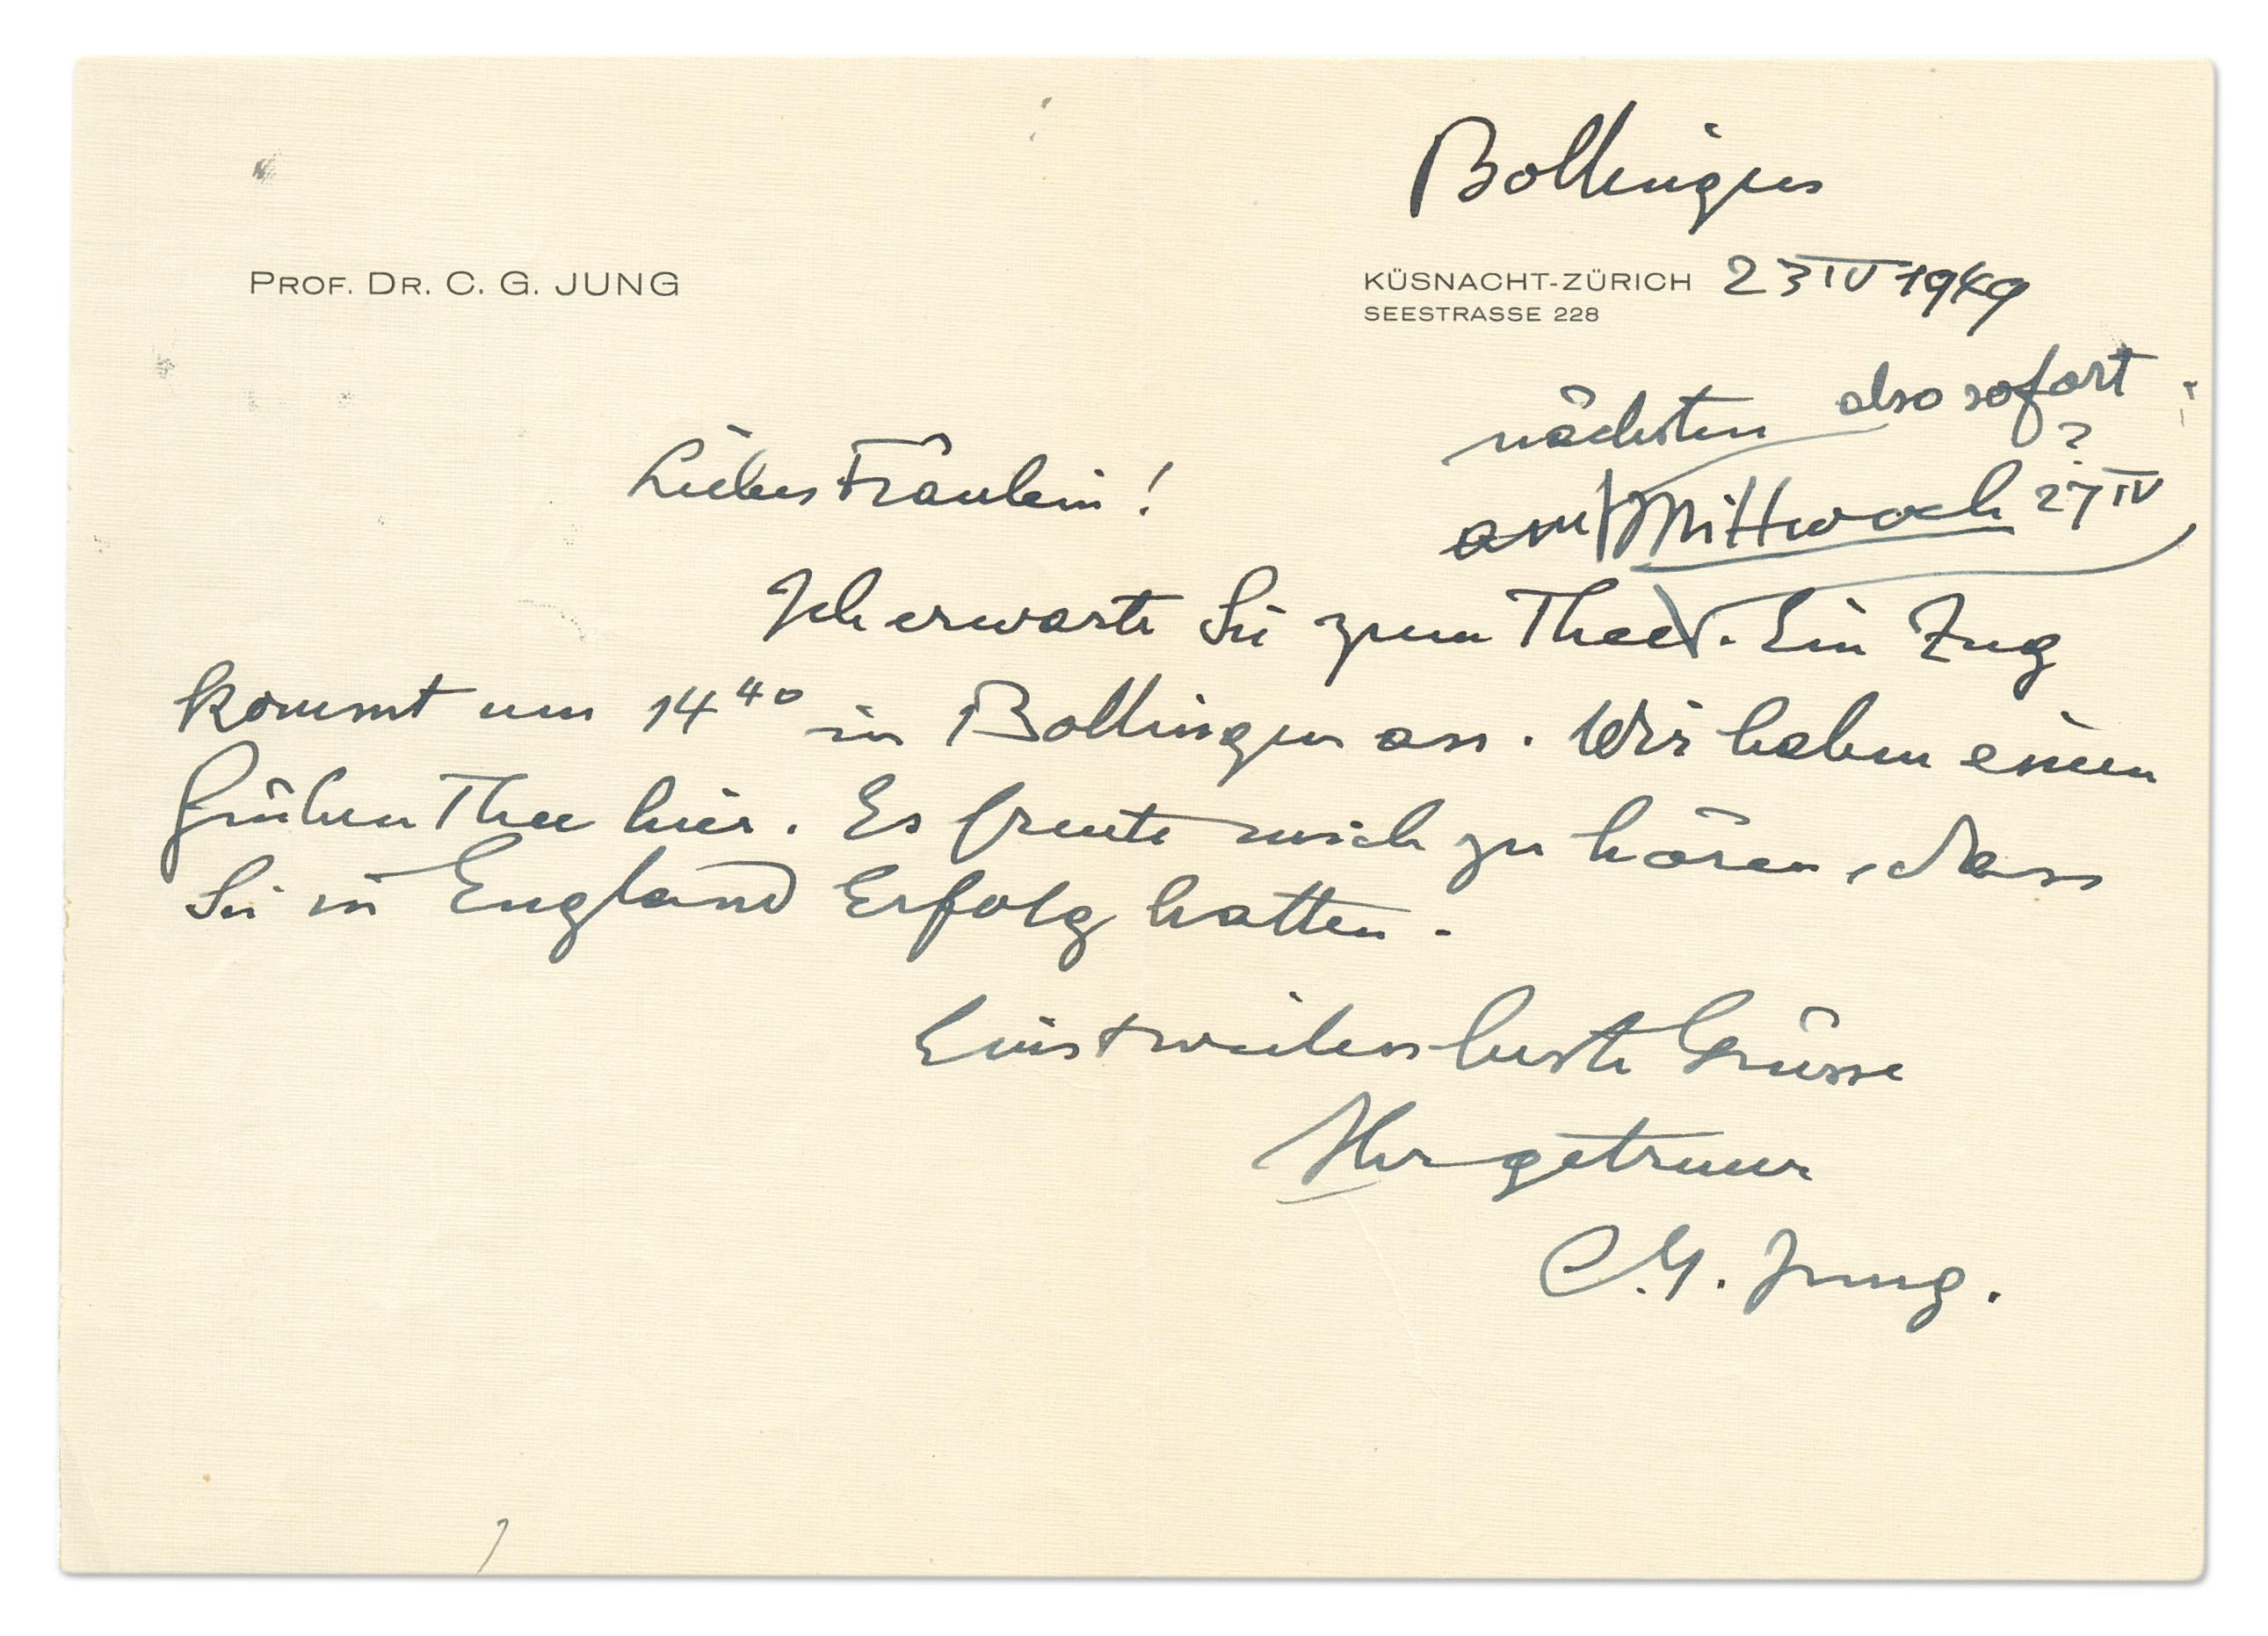 Bollingen
PROF. DR. C. G. JUNG
KÜSNACHT-ZÜRICH 23 IV 1949
SEESTRASSE 228
nächsten also sofort
?
Liebes Fräulein!
am Mittwoch 27 IV
Ich erwarte Sie zum Thee. Ein Zug
kommt um 14 40 in Bollingen an. Wir haben einen
frühen Thee hier. Es freute mich zu hören, dass
Sie in England Erfolg hatten.
Einstweilen beste Grüsse
Ihr getreuer
C. G. Jung.